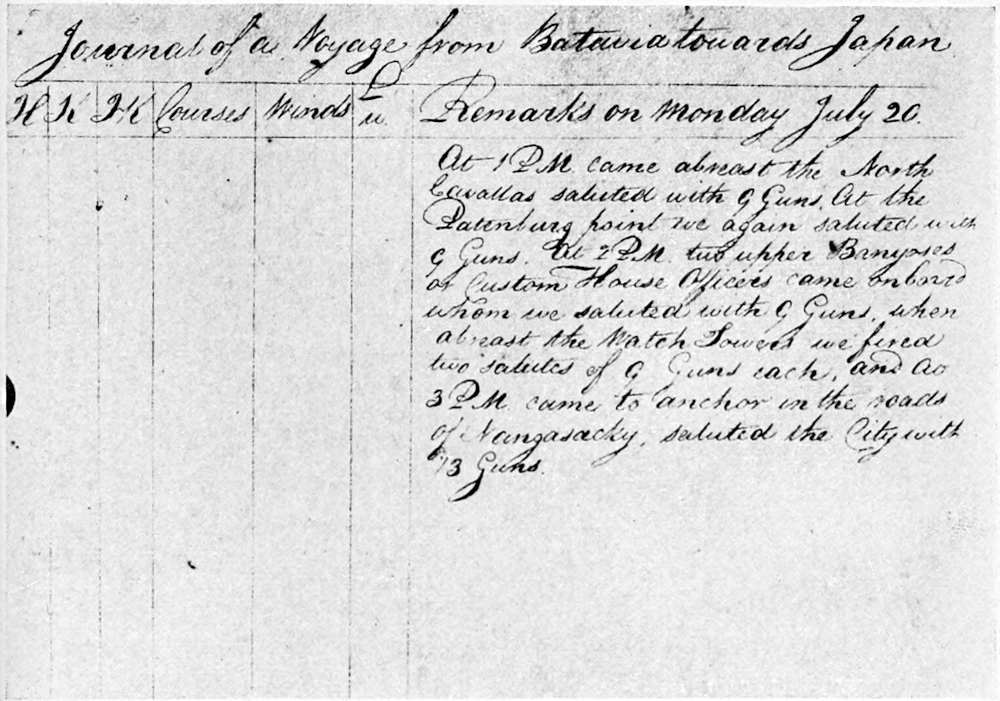 Journal of a Voyage from Batavia towards Japan
H K HK Courses Winds Lw Remarks on Monday July 20.
At 1 PM came abreast the North
Cavallas saluted with 9 Guns. At the
Patenburg point we again saluted with
9 Guns. At 2 PM. two upper Banyoses
or Custom House Officers came on bord
whom we saluted with 9 Guns, when
abreast the Watch Towers we fired
two salutes of 9 Guns each, and at
3 PM. came to anchor in the roads
of Nangasacky, saluted the City with
13 Guns.